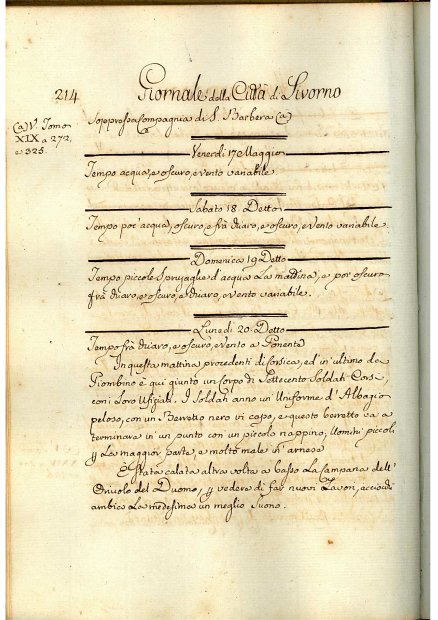 214
Giornale della Città di Livorno
(a) V. Tomo
XIX a 272.
e 325.
Soppressa Compagnia di S. Barbera (a)
Venerdi 17 Maggio
Tempo acqua, e oscuro, e vento variabile
Sabato 18 Detto
Tempo poc' acqua, oscuro, e frà chiaro, e oscuro, e vento variabile.
Domenica 19 Detto
Tempo piccole spruzaglie d'acqua la mattina, e poi oscuro
frà chiaro, e oscuro, e chiaro, e vento variabile.
Lunedi 20 Detto
Tempo frà chiaro, e oscuro, e vento a Ponente
In questa mattina procedenti di Corsica, ed' in ultimo da
Piombino è qui giunto un Corpo di Settecento Soldati Corsi,
con i Loro Ufiziali. I Soldati anno un' Uniforme d'Albagio
peloso, con un Berretto nero in capo, e questo berretto va a
terminare in un punto con un piccolo nappino, Uomini piccoli
p. La maggior parte, e molto male in arnese
È stata calata altra volta a basso La Campana dell'
Oriuolo del Duomo, p. vedere di far nuovi Lavori, acciò di
ambica La medesima un meglio Suono.